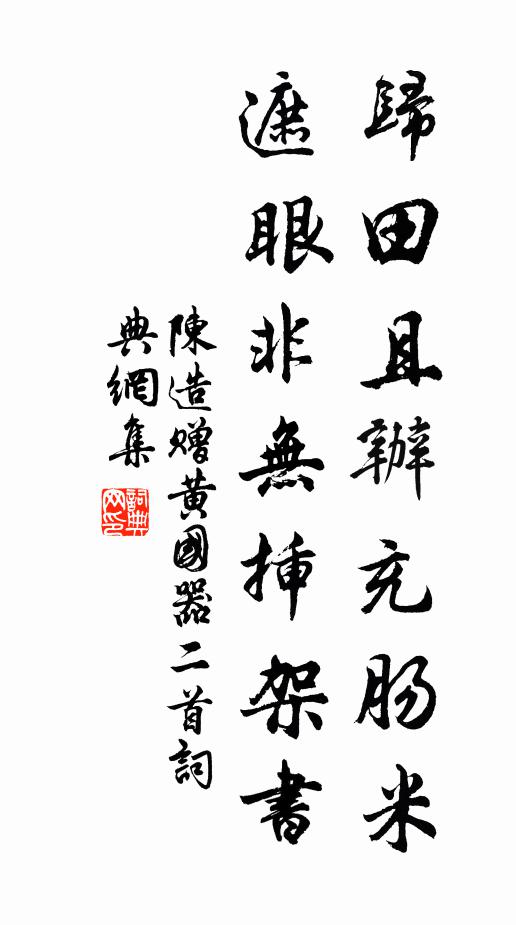 歸田且辦充肠米
遮眼非無挿架書
陳造贈黄國器二首詞
典網集
詞典网印